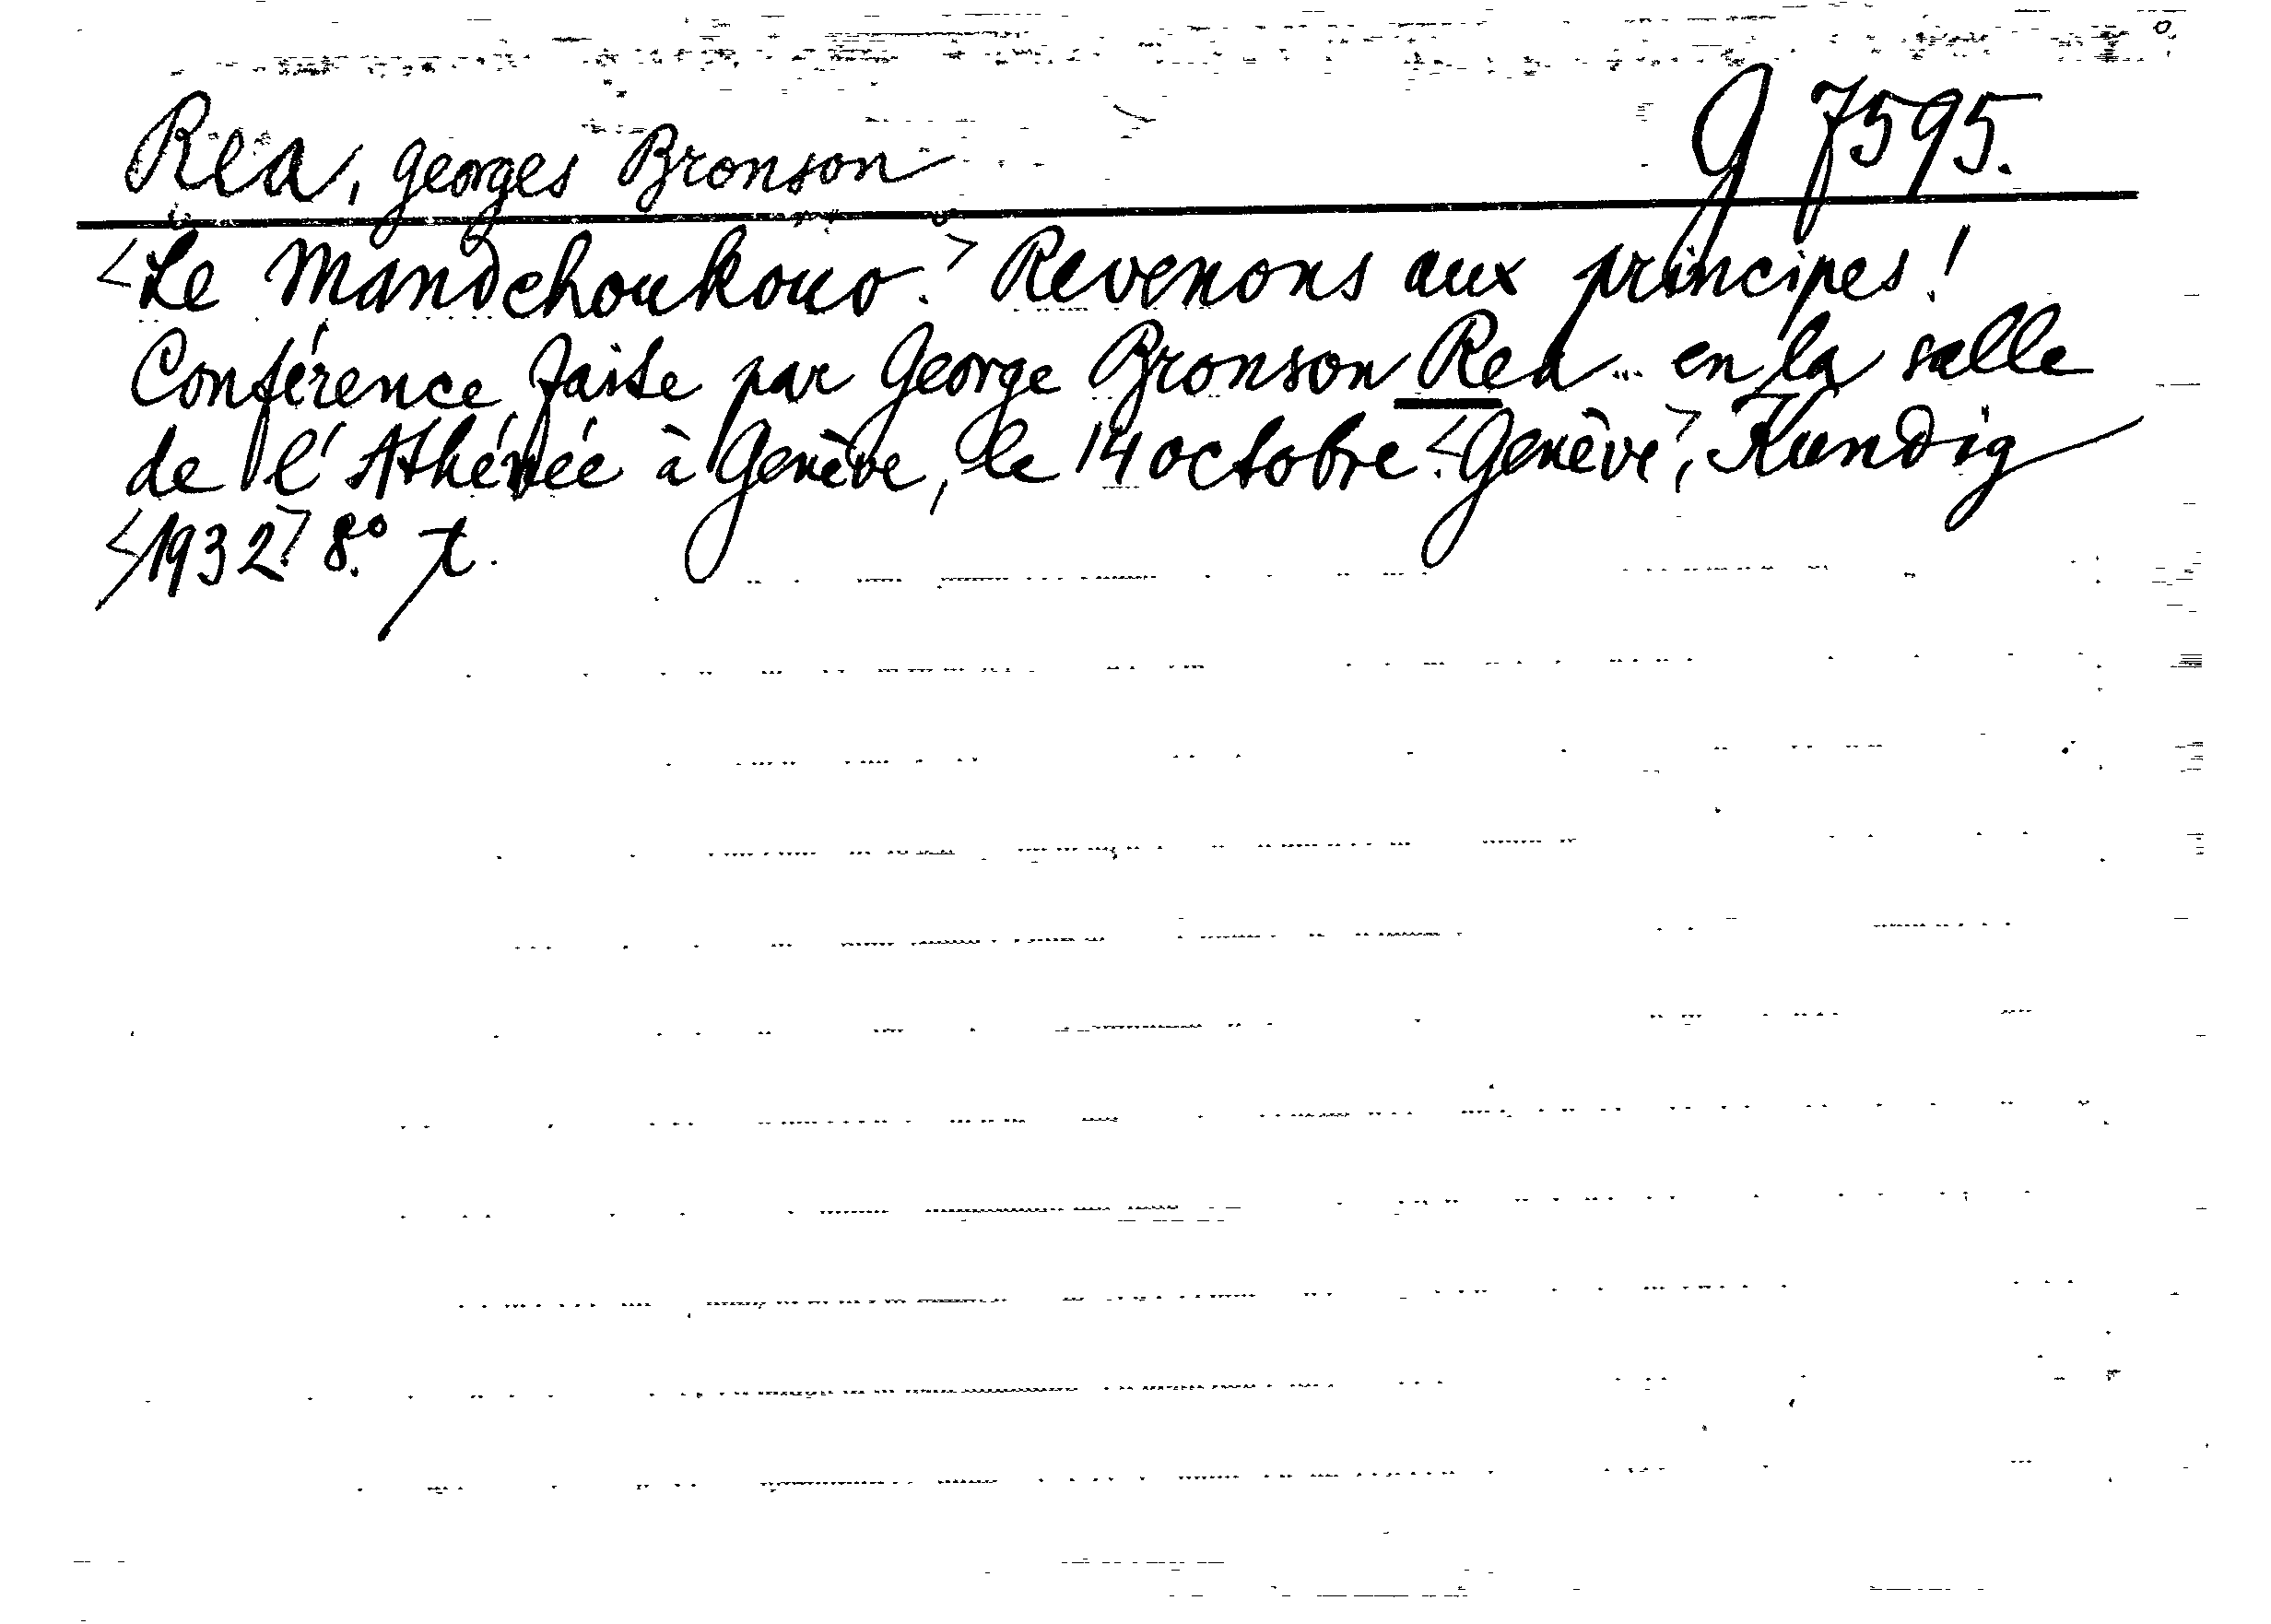 Rea, Georges Bronson G 7595.
<Le Mandchoukouo.> Revenons aux principes!
Conférence faite par George Bronson Rea... en la salle
de l'Athénée à Genève, le 14 octobre. <Genève>, Kundig
<1932> 8.°